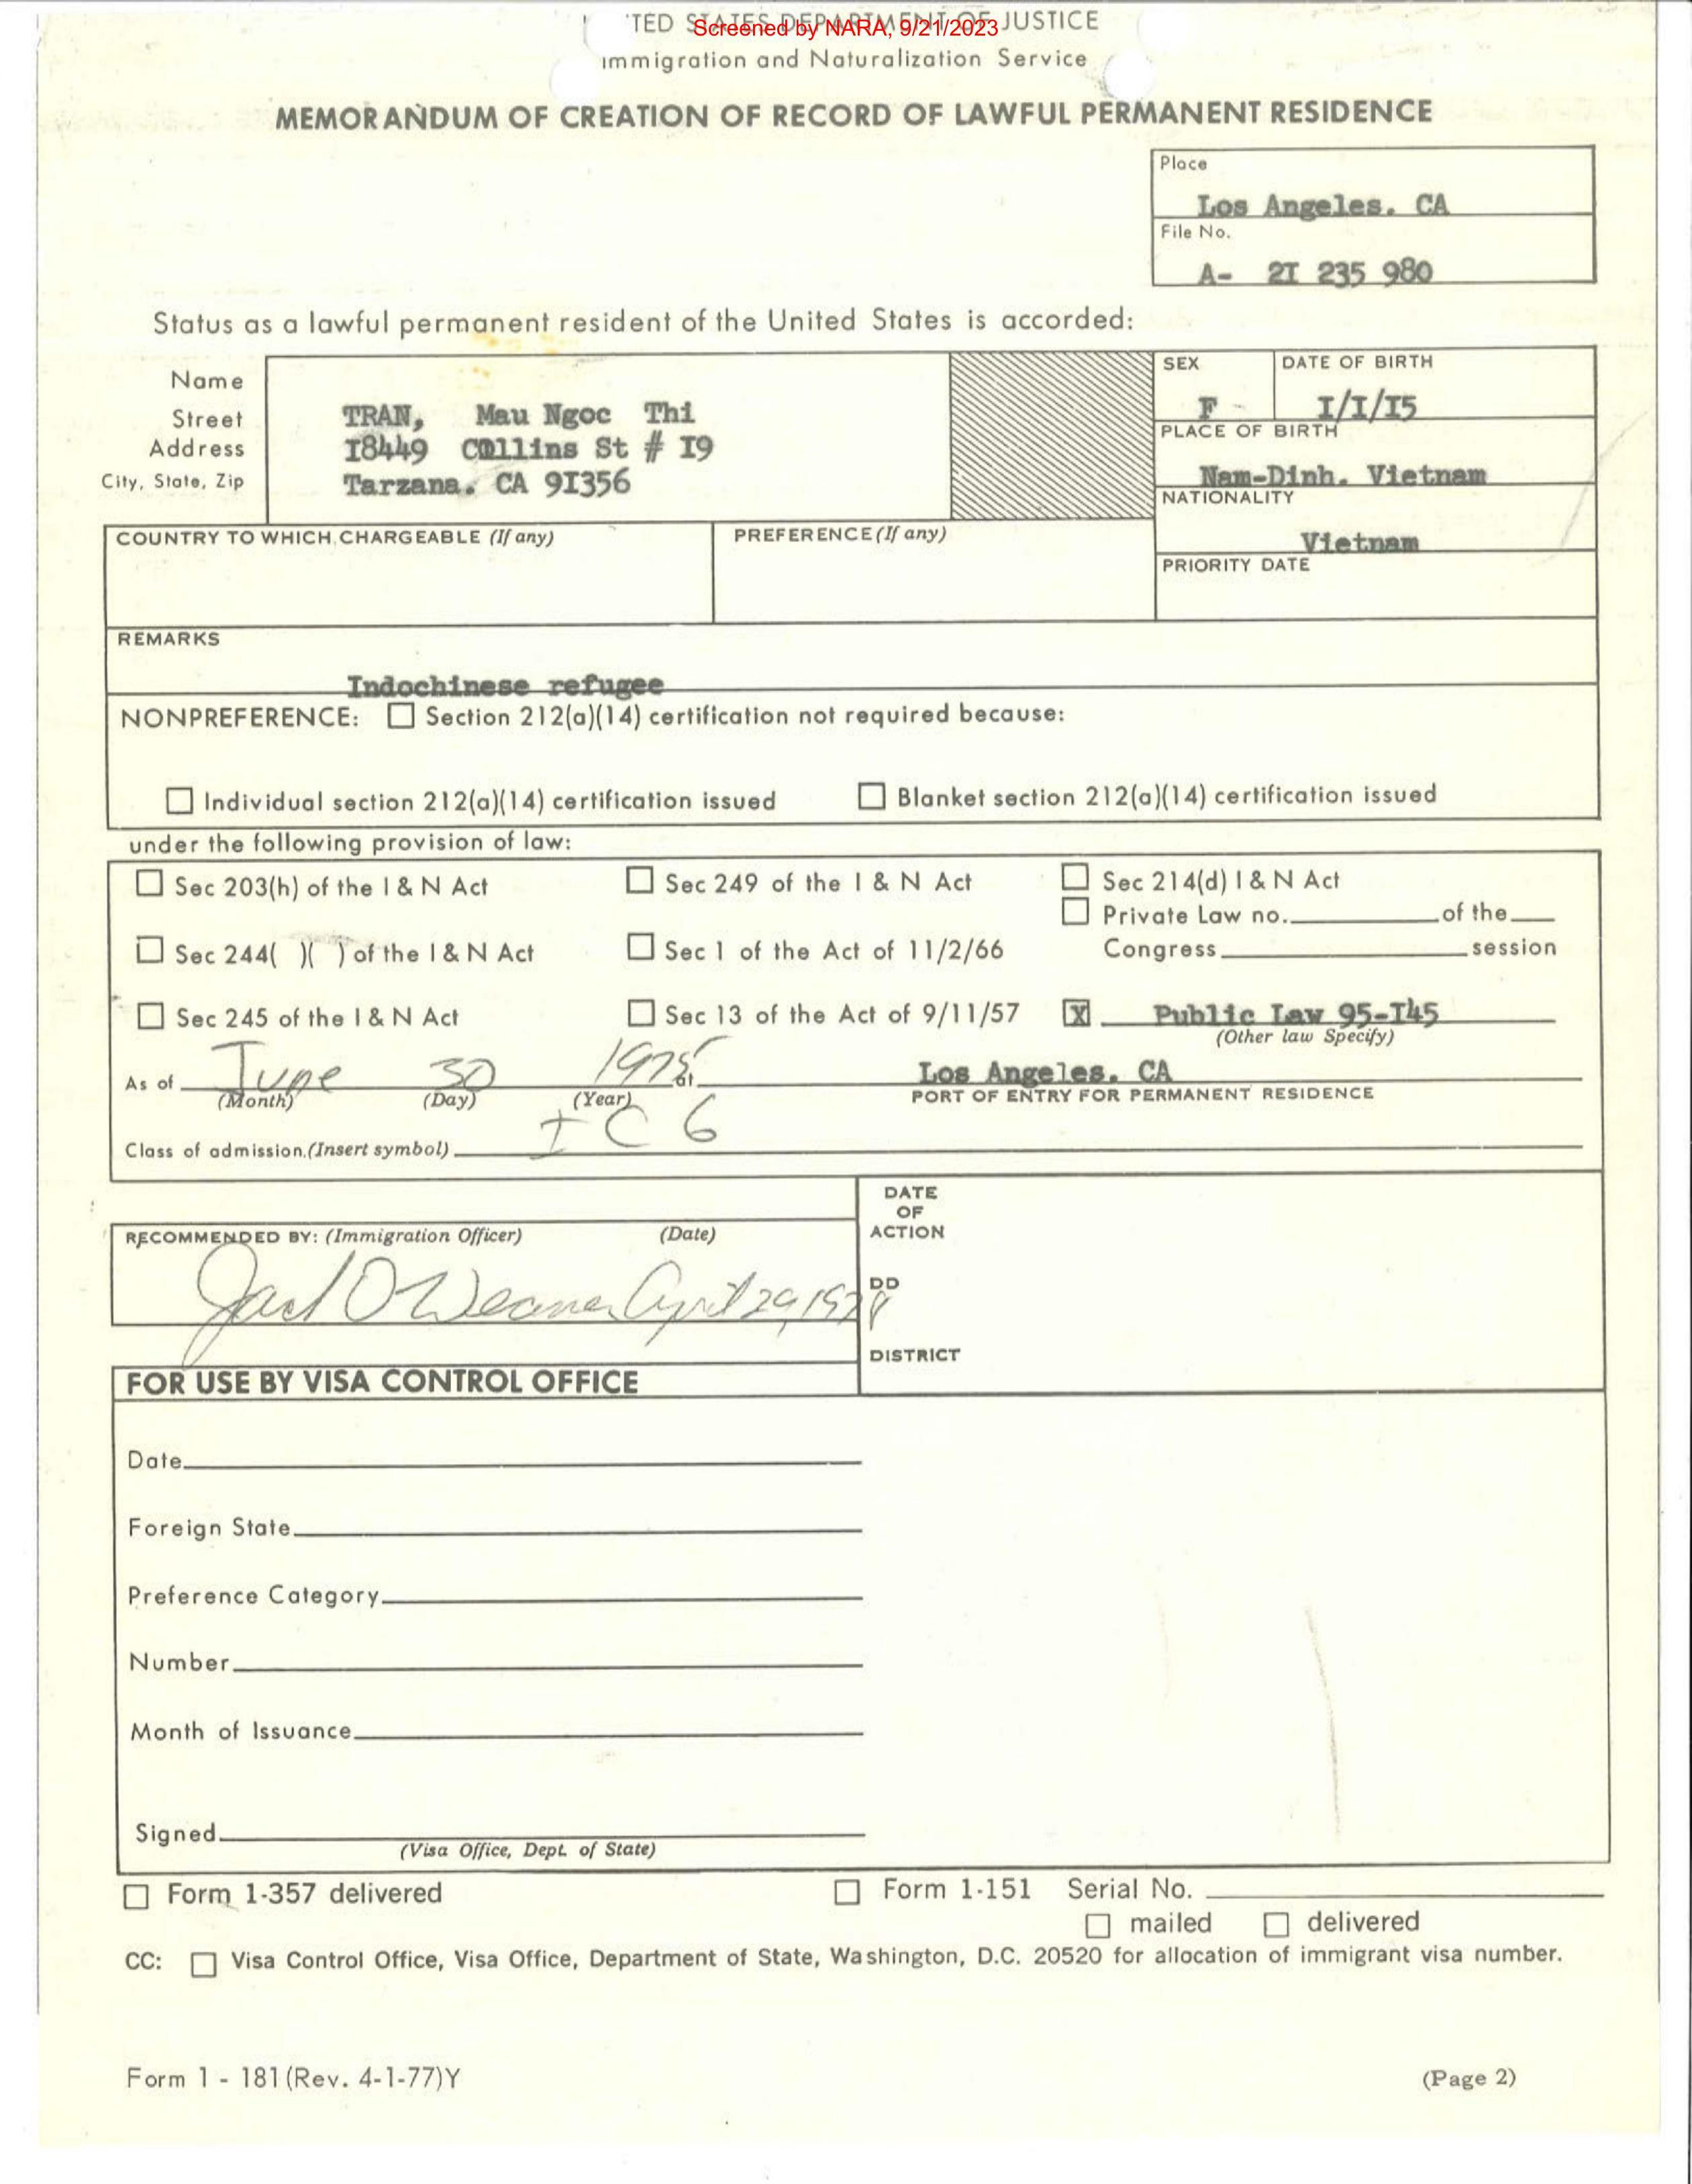 'TED STATES DEPARTMENT OF JUSTICE
Screened by NARA, 9/21/2023
Immigration and Naturalization Service
MEMORANDUM OF CREATION OF RECORD OF LAWFUL PERMANENT RESIDENCE
Place
Los Angeles. CA
File No.
A- 2I 235 980
Status as a lawful permanent resident of the United States is accorded:
Name
Street
Address
City, State, Zip
TRAN, Mau Ngoc Thi
I8449 Collins St # I9
Tarzana. CA 9I356
SEX
F
DATE OF BIRTH
I/I/I5
PLACE OF BIRTH
Nam-Dinh. Vietnam
NATIONALITY
Vietnam
PRIORITY DATE
COUNTRY TO WHICH CHARGEABLE (If any)
PREFERENCE (If any)
REMARKS
Indochinese refugee
NONPREFERENCE: ☐ Section 212(a)(14) certification not required because:
☐ Individual section 212(a)(14) certification issued ☐ Blanket section 212(a)(14) certification issued
under the following provision of law:
☐ Sec 203(h) of the I & N Act ☐ Sec 249 of the I & N Act ☐ Sec 214(d) I & N Act
☐ Private Law no. of the
☐ Sec 244( )( ) of the I & N Act ☐ Sec 1 of the Act of 11/2/66 Congress session
☐ Sec 245 of the I & N Act ☐ Sec 13 of the Act of 9/11/57 ☒ Public Law 95-I45
(Other law Specify)
As of June 30 1975 at Los Angeles. CA
(Month) (Day) (Year) PORT OF ENTRY FOR PERMANENT RESIDENCE
Class of admission.(Insert symbol) IC 6
RECOMMENDED BY: (Immigration Officer) (Date)
Jack O Weaver April 29, 1978
DATE
OF
ACTION
DD
DISTRICT
FOR USE BY VISA CONTROL OFFICE
Date
Foreign State
Preference Category
Number
Month of Issuance
Signed
(Visa Office, Dept. of State)
☐ Form 1-357 delivered ☐ Form 1-151 Serial No.
☐ mailed ☐ delivered
CC: ☐ Visa Control Office, Visa Office, Department of State, Washington, D.C. 20520 for allocation of immigrant visa number.
Form 1 - 181 (Rev. 4-1-77)Y
(Page 2)